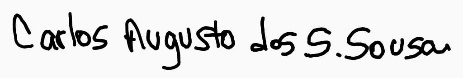 Carlos Augusto dos S. Sousa